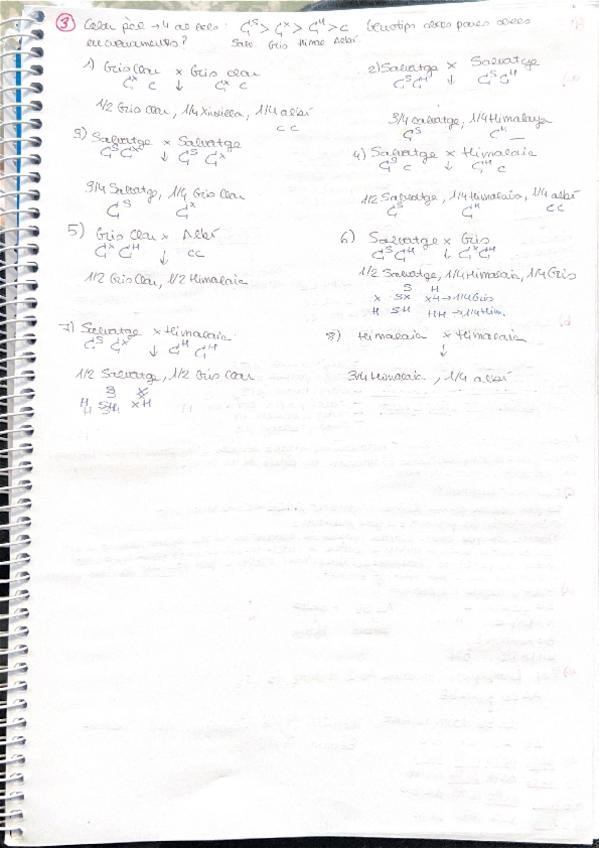 ③ Color pèl → 4 al·lels: Cˢ > Cˣ > Cᴴ > c Genotips dels pares dels
encreuaments? Salv Gris Hima Albí
1) Gris Clar × Gris clar
Cˣ c ↓ Cˣ c
1/2 Gris Clar, 1/4 1/4 albí
c c
2) Salvatge × Salvatge
CˢCᴴ ↓ CˢCᴴ
3/4 Salvatge, 1/4 Himalaya
Cˢ Cᴴ _
3) Salvatge × Salvatge
CˢCˣ ↓ Cˢ Cˣ
3/4 Salvatge, 1/4 Gris Clar
Cˢ Cˣ
4) Salvatge × Himalaia
Cˢ c ↓ Cᴴ c
1/2 Salvatge, 1/4 Himalaia, 1/4 albí
Cˢ Cᴴ cc
5) Gris Clar × Albí
Cˣ Cᴴ ↓ cc
1/2 Gris Clar, 1/2 Himalaia
6) Salvatge × Gris
CˢCᴴ ↓ CˣCᴴ
1/2 Salvatge, 1/4 Himalaia, 1/4 Gris
S H
X SX XH → 1/4 Gris
H SH HH → 1/4 Him.
7) Salvatge × Himalaia
Cˢ Cˣ ↓ Cᴴ Cᴴ
1/2 Salvatge, 1/2 Gris Clar
S X
H SH XH
H
8) Himalaia × Himalaia
↓
3/4 Himalaia, 1/4 albí